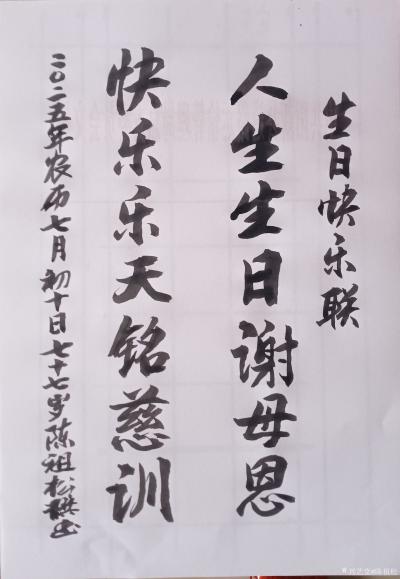 生日快乐联
人生生日谢母恩
快乐乐天铭慈训
二〇二五年农历七月初十日七十七岁陈祖松撰书